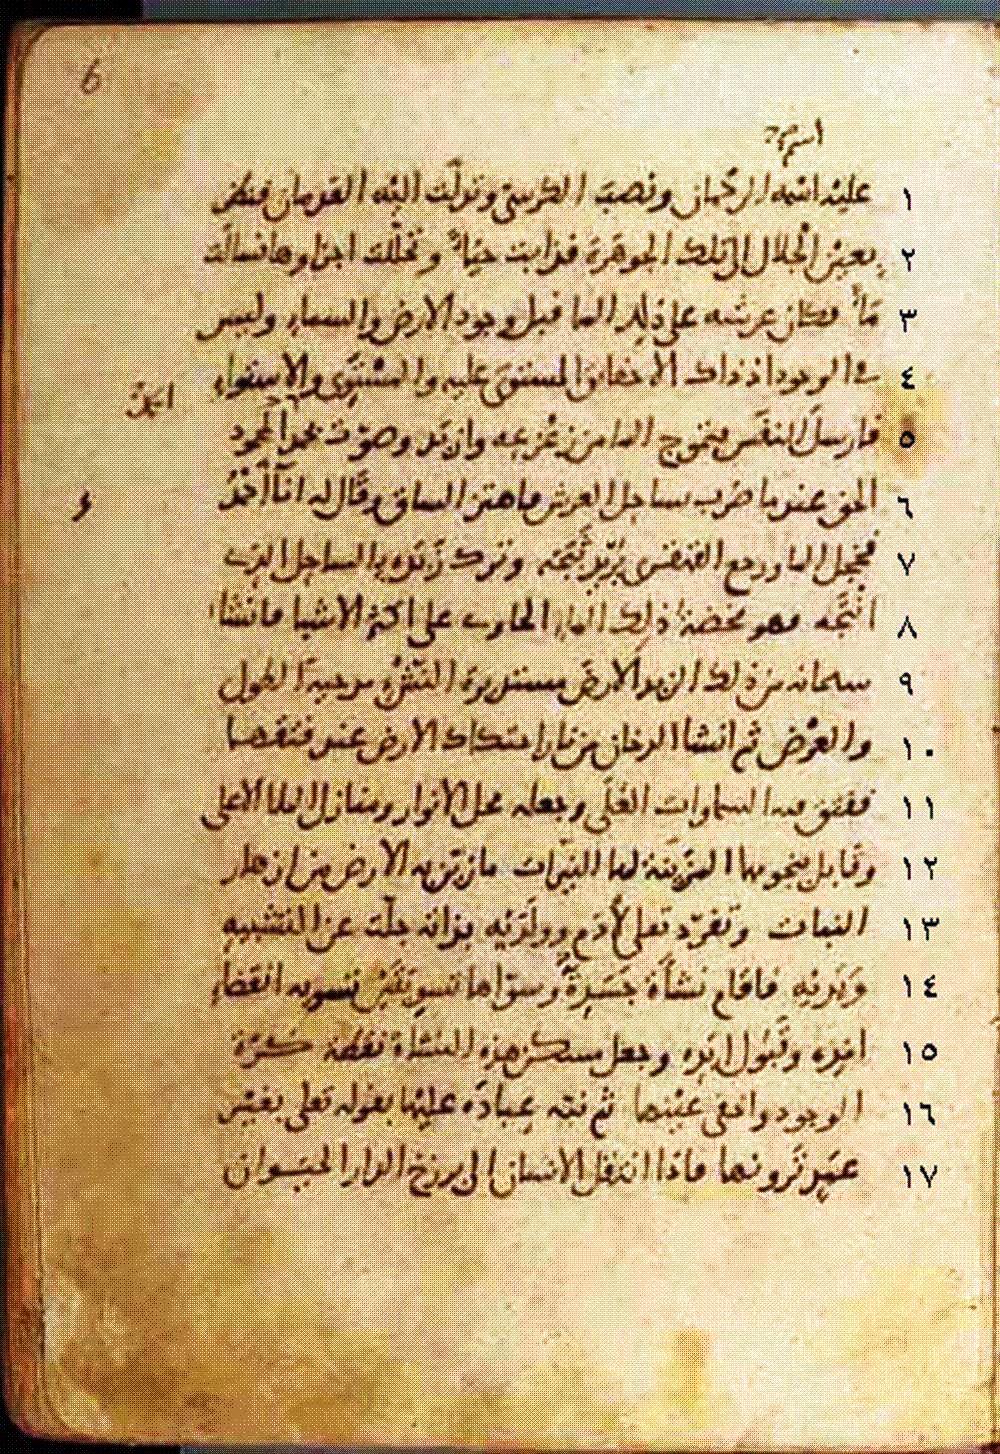 6
اسم صح
١ عليه اسمه الرحمان ونصب الكرسي وتدلّت اليه القدمان فنظر
٢ بعين الجلال الى تلك الجوهرة فذابت حياءً وتحلّلت اجزاوها فسالت
٣ ماءً فكان عرشه على ذلك الما قبل وجود الارض والسماء وليس
٤ في الوجود اذ ذاك الا حقائق المستوى عليه والمستوِى والاستواء
٥ فارسل النفَس فتموج الما من زعزعه وازبد وصوّت بحمد المحمود
الحمد
٦ الحق عندما ضرب بساحل العرش فاهتز الساق وقال له انا احمدُ
٧ فخجل الما ورجع القهقرى يريد ثبَجَه وترك زبَده بالساحل الذي
٨ انتجه فهو مخضة ذلك الماء الحاوي على اكثر الاشيا فانشا
٩ سبحانه من ذلك الزبد الارض مستديرة النشْء مدحية الطول
١٠ والعرْض ثم انشا الدخان من نار احتكاك الارض عند فتقها
١١ ففتق فيه السماوات العُلَى وجعله محل الانوار ومنازل الملا الاعلى
١٢ وقابل بنجومها المزيّنة لها النيّرات ما زيّن به الارض من ازهار
١٣ النبات وتفرّد تعلى لأدم وولدَيْه بذاته جلّت عن التشبيه
١٤ ويَدَيْه فاقام نشأة جَسَدِهِ وسوّاها تسويتَيْن تسوية انقضاء
١٥ امدِه وقَبُول ابدِه وجعل مسكن هذه النشاة نقطة كرّة
١٦ الوجود واخفى عيْنها ثم نبّه عِبادَه عليْها بقوله تعلى بغيْر
١٧ عمَدٍ ترونها فاذا انتقل الانسان الى برزخ الدار الحيَوان